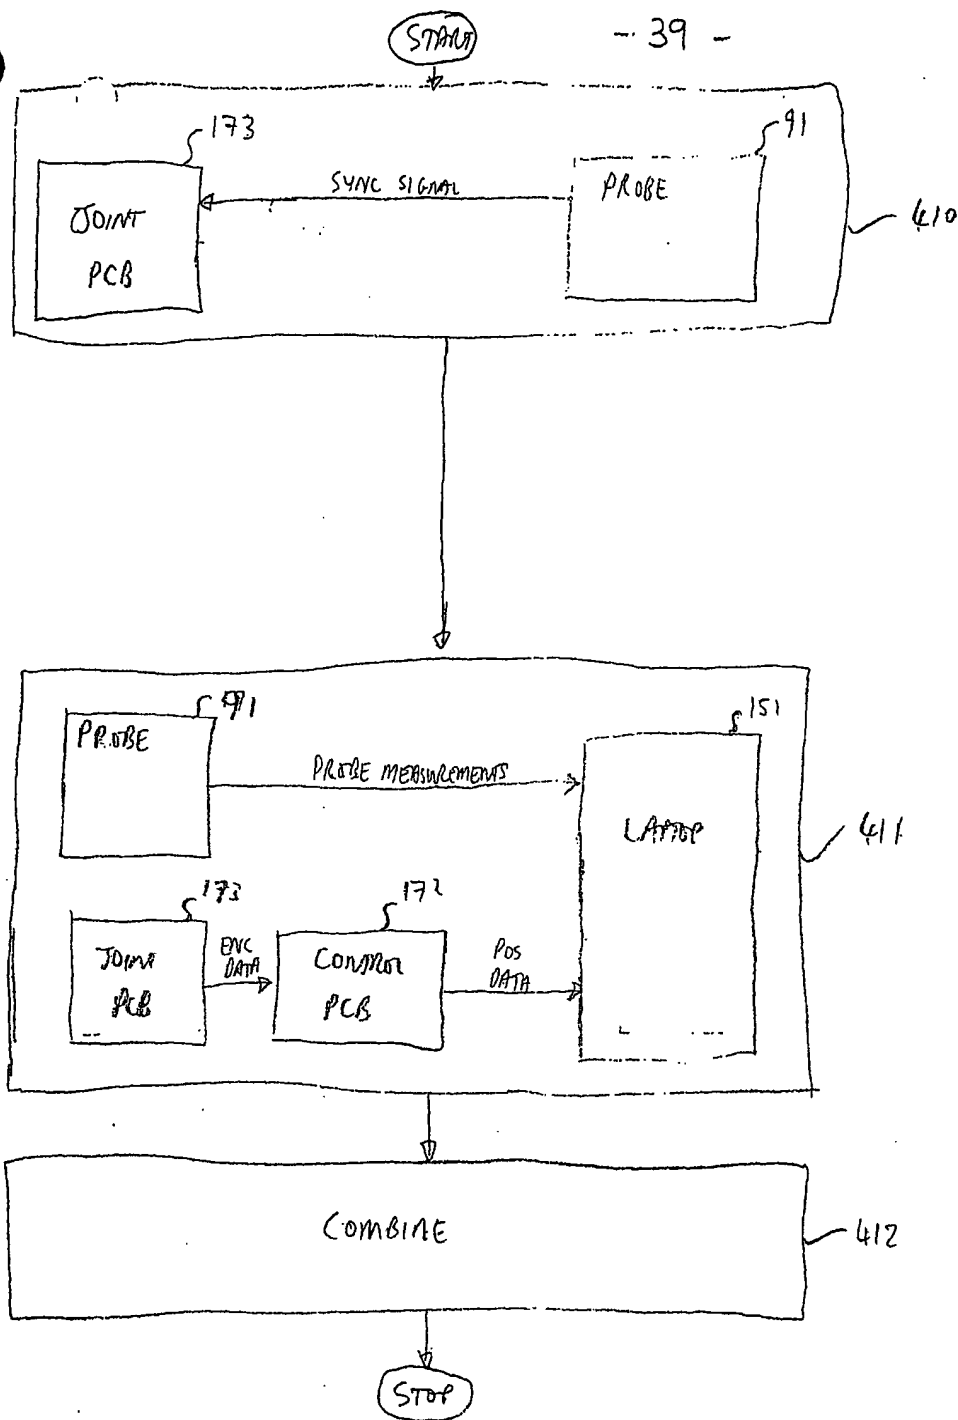 START
- 39 -
173
91
JOINT
PCB
SYNC SIGNAL
PROBE
410
91
PROBE
151
PROBE MEASUREMENTS
LAPTOP
411
173
172
JOINT
PCB
ENC
DATA
CONTROL
PCB
POS
DATA
COMBINE
412
STOP